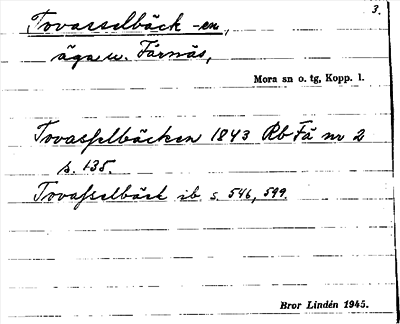 Tovasselbäck -en, 3.
äga u. Färnäs,
Mora sn o. tg, Kopp. l.
Tovasselbäcken 1843 Rb Fä nr 2
s. 135.
Tovasselbäck ib. s. 546, 599.
Bror Lindén 1945.